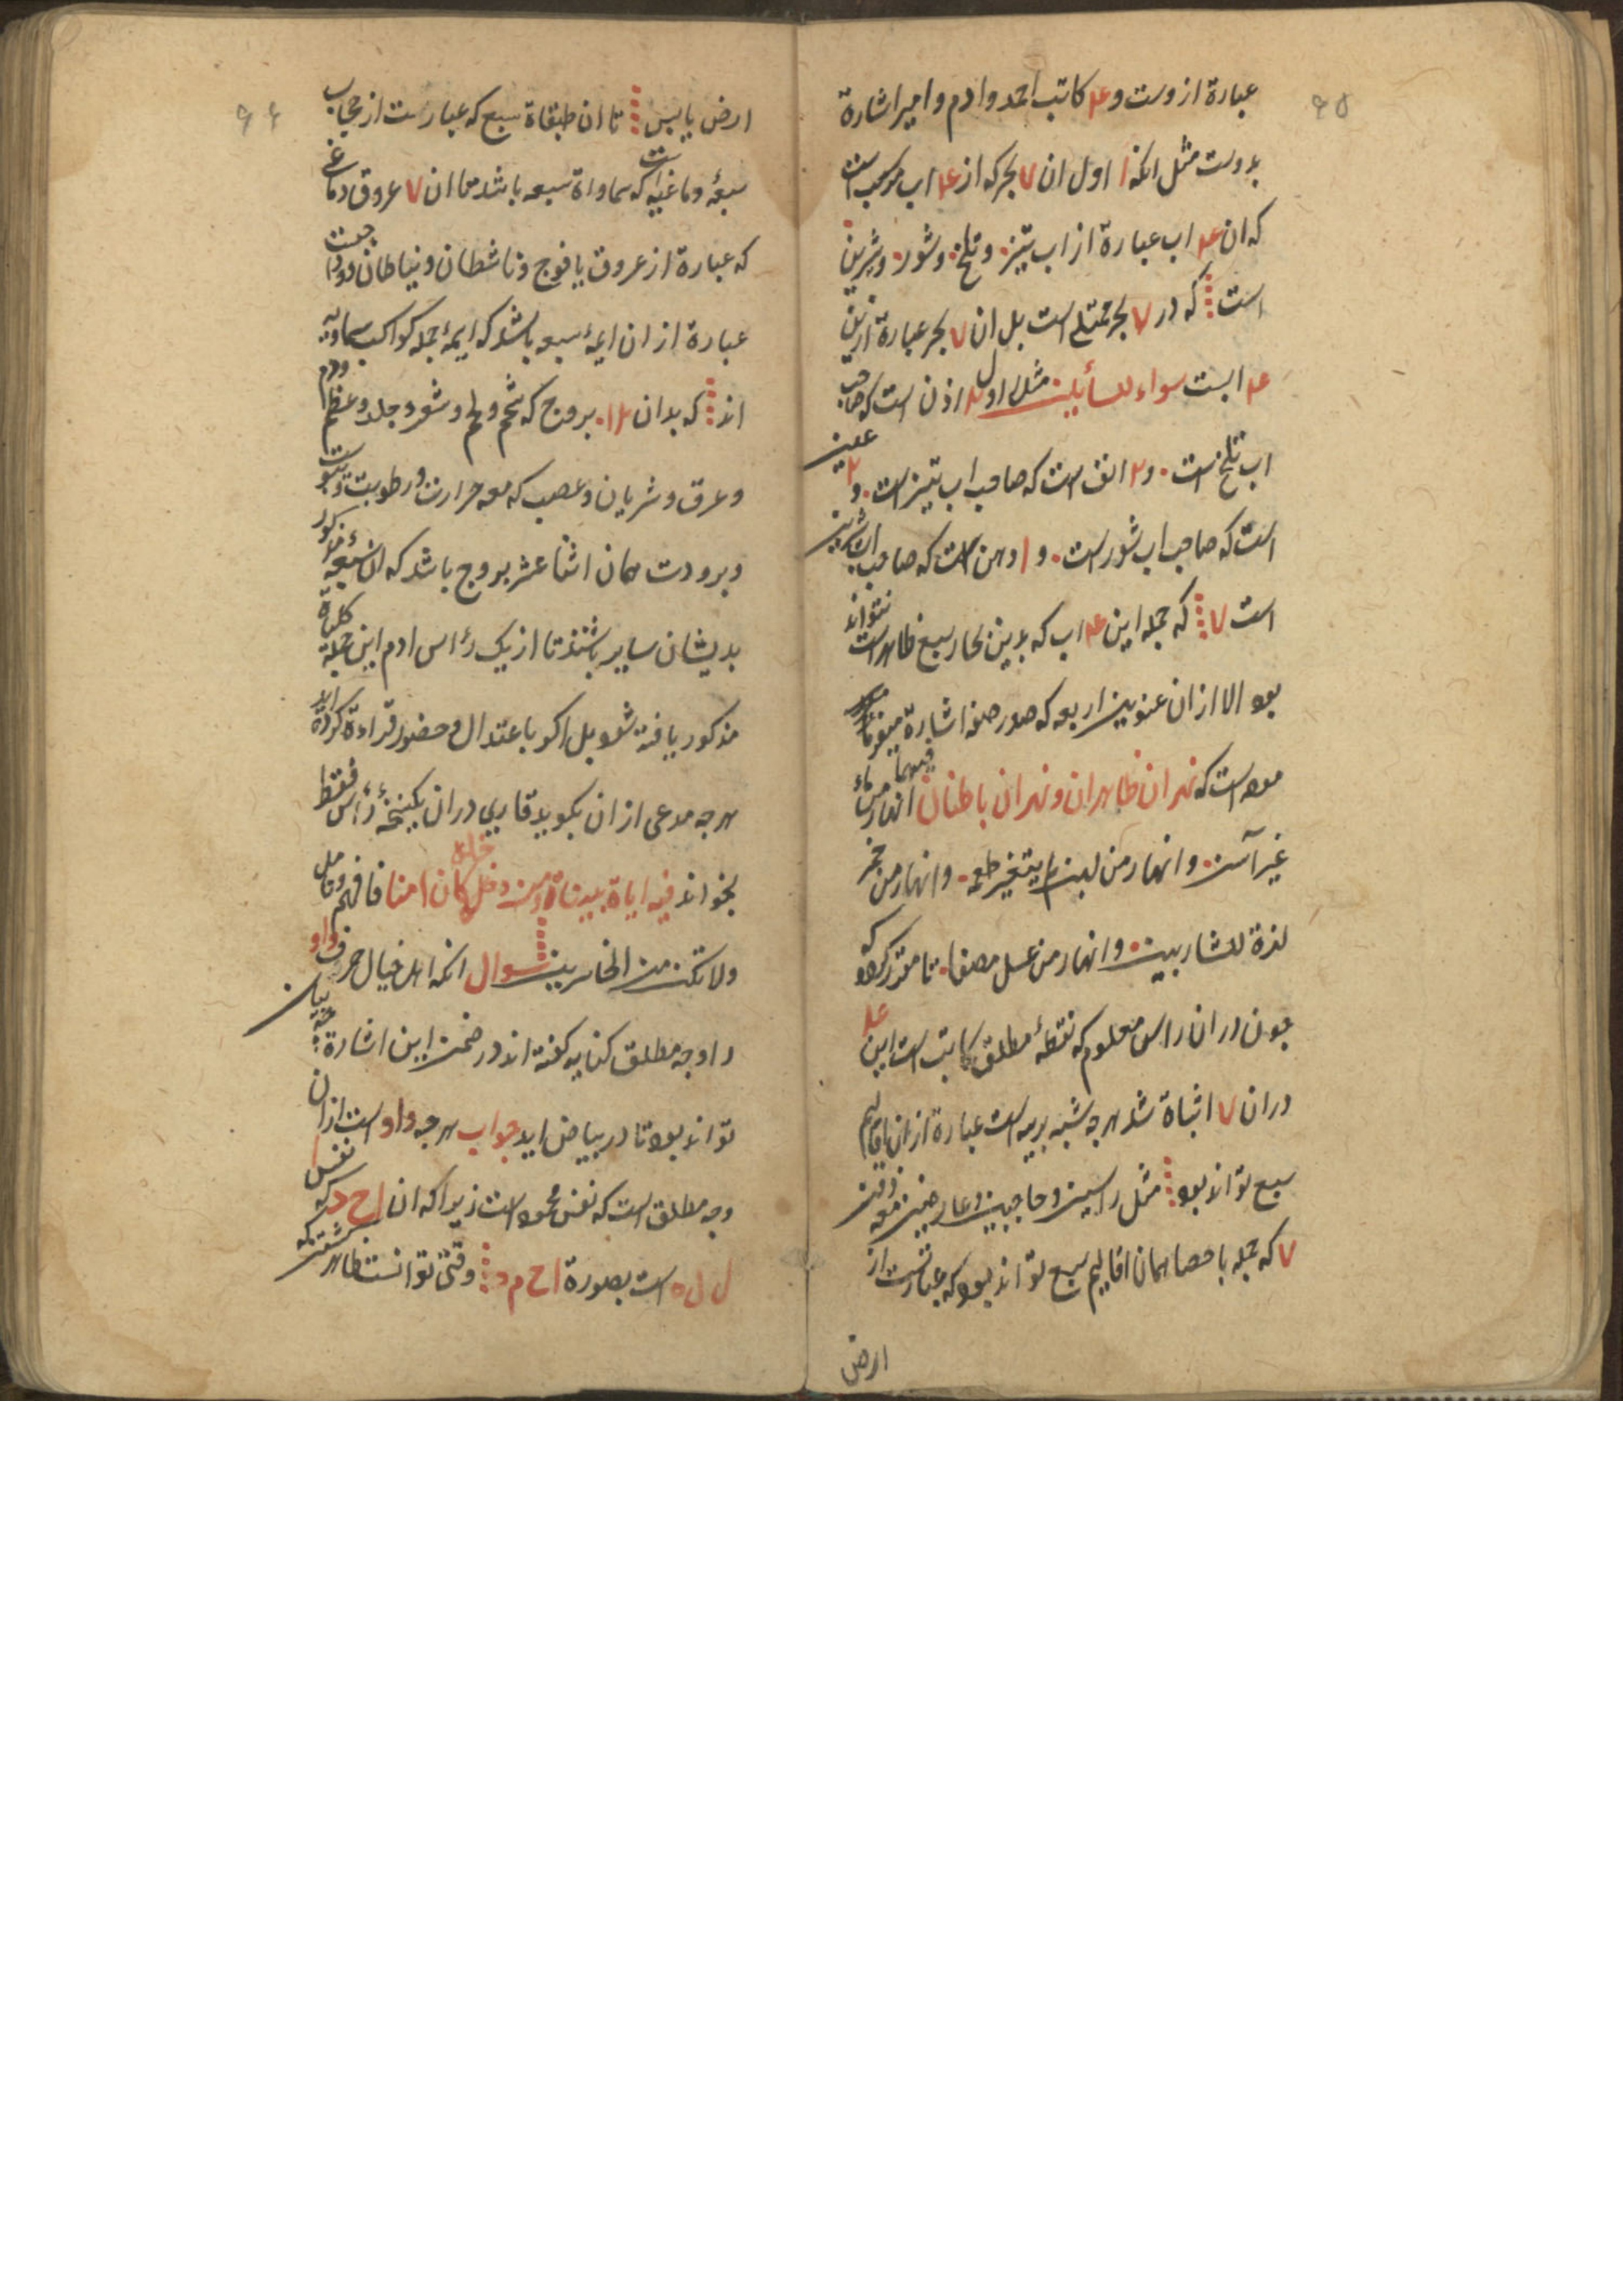 ۹۵
عبارة ازوست و ۴ کاتب احمد وادم وامیر اشارة
بدوست مثل انکه ۱ اول ان ۷ بحر که از ۴ اب مرکب است
که ان ۴ اب عبارة از اب تیز وتلخ وشور وشیرین
است که در ۷ بحر ممتلی است بل ان ۷ بحر عبارة ازین
۴ ابست سواء للسائلین مثل اول اذن است که صاحب
اب تلخ است و ۲ انف است که صاحب اب تیز است و ۳ عین
است که صاحب اب شور است و دهن است که صاحب اب شیرین
است ۷ که جمله این ۴ اب که بدین بحار سبع ظاهر است نتواند
بود الا از ان عنوین اربعه که صدر صفه اشارة میفرماید
موده است که نهران ظاهران ونهران باطنان فیهما انهار من ماء
غیر آسن وانهار من لبن لم یتغیر طعمه وانهار من خمر
لذة للشاربین وانهار من عسل مصفا تا مقرر کردد که
جون در ان راس معلوم که نقطهٔ مطلق کاتب است این ۴
در ان ۷ اثباة شد هرجه شبه بریه است عبارة از ان اقالیم
سبع تواند بود مثل راسین وحاجبین وعارضین معه ذقن
۷ که جمله باحصا همان اقالیم سبع تواند بود که عبارتست از
ارض
۹۶
ارض یابس تا ان طبقاة سبع که عبارست از حجاب
سبعهٔ دماغیه است که سماواة سبعه باشد مما ان ۷ عروق دماغی
که عبارة از عروق یافوج وناشطان ونیاطان
عبارة از ان ایمهٔ سبعه باشد که ایمهٔ جمله کواکب سماویه
اند که بدان ۱۲ بروج که شحم ولحم وشعر وجلد وعظم ودم
وعرق وشریان وعصب که معه حرارت ورطوبت ویبوست
وبرودت همان اثنا عشر بروج باشد که ان سبعهٔ مذکور
بدیشان سایر باشند تا از یک راس ادم این جمله کلمات
مذکور یافته شود بل اکر باعتدال وحضور قراءة کرده اید
هرجه مدعی از ان بکوید قاری در ان یکنخهٔ راس فقط
بخواند فیه ایاة بیناة ومن دخله کان امنا فافهم وتامل
ولا تکن من الخاسرین سوال انکه اهل خیال حرف واو
را وجه مطلق کنایه کفته اند در ضمن این اشارة جه بیان
تواند بود تا در بیاض اید جواب هرجه واو است از ان
وجه مطلق است که نفس محمود است زیرا که ان اح د که نفس
ل ل ه است بصورة اح م د وقتی توانست ظاهر